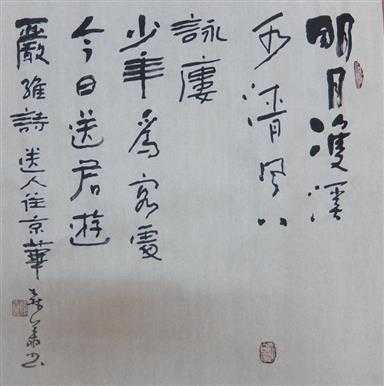 明月雙溪
水清风八
詠廔
少年爲客處
今日送君遊
嚴維詩送人往京華